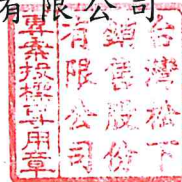 有限公司
台灣松下
銷售股份
有限公司
專案投標專用章